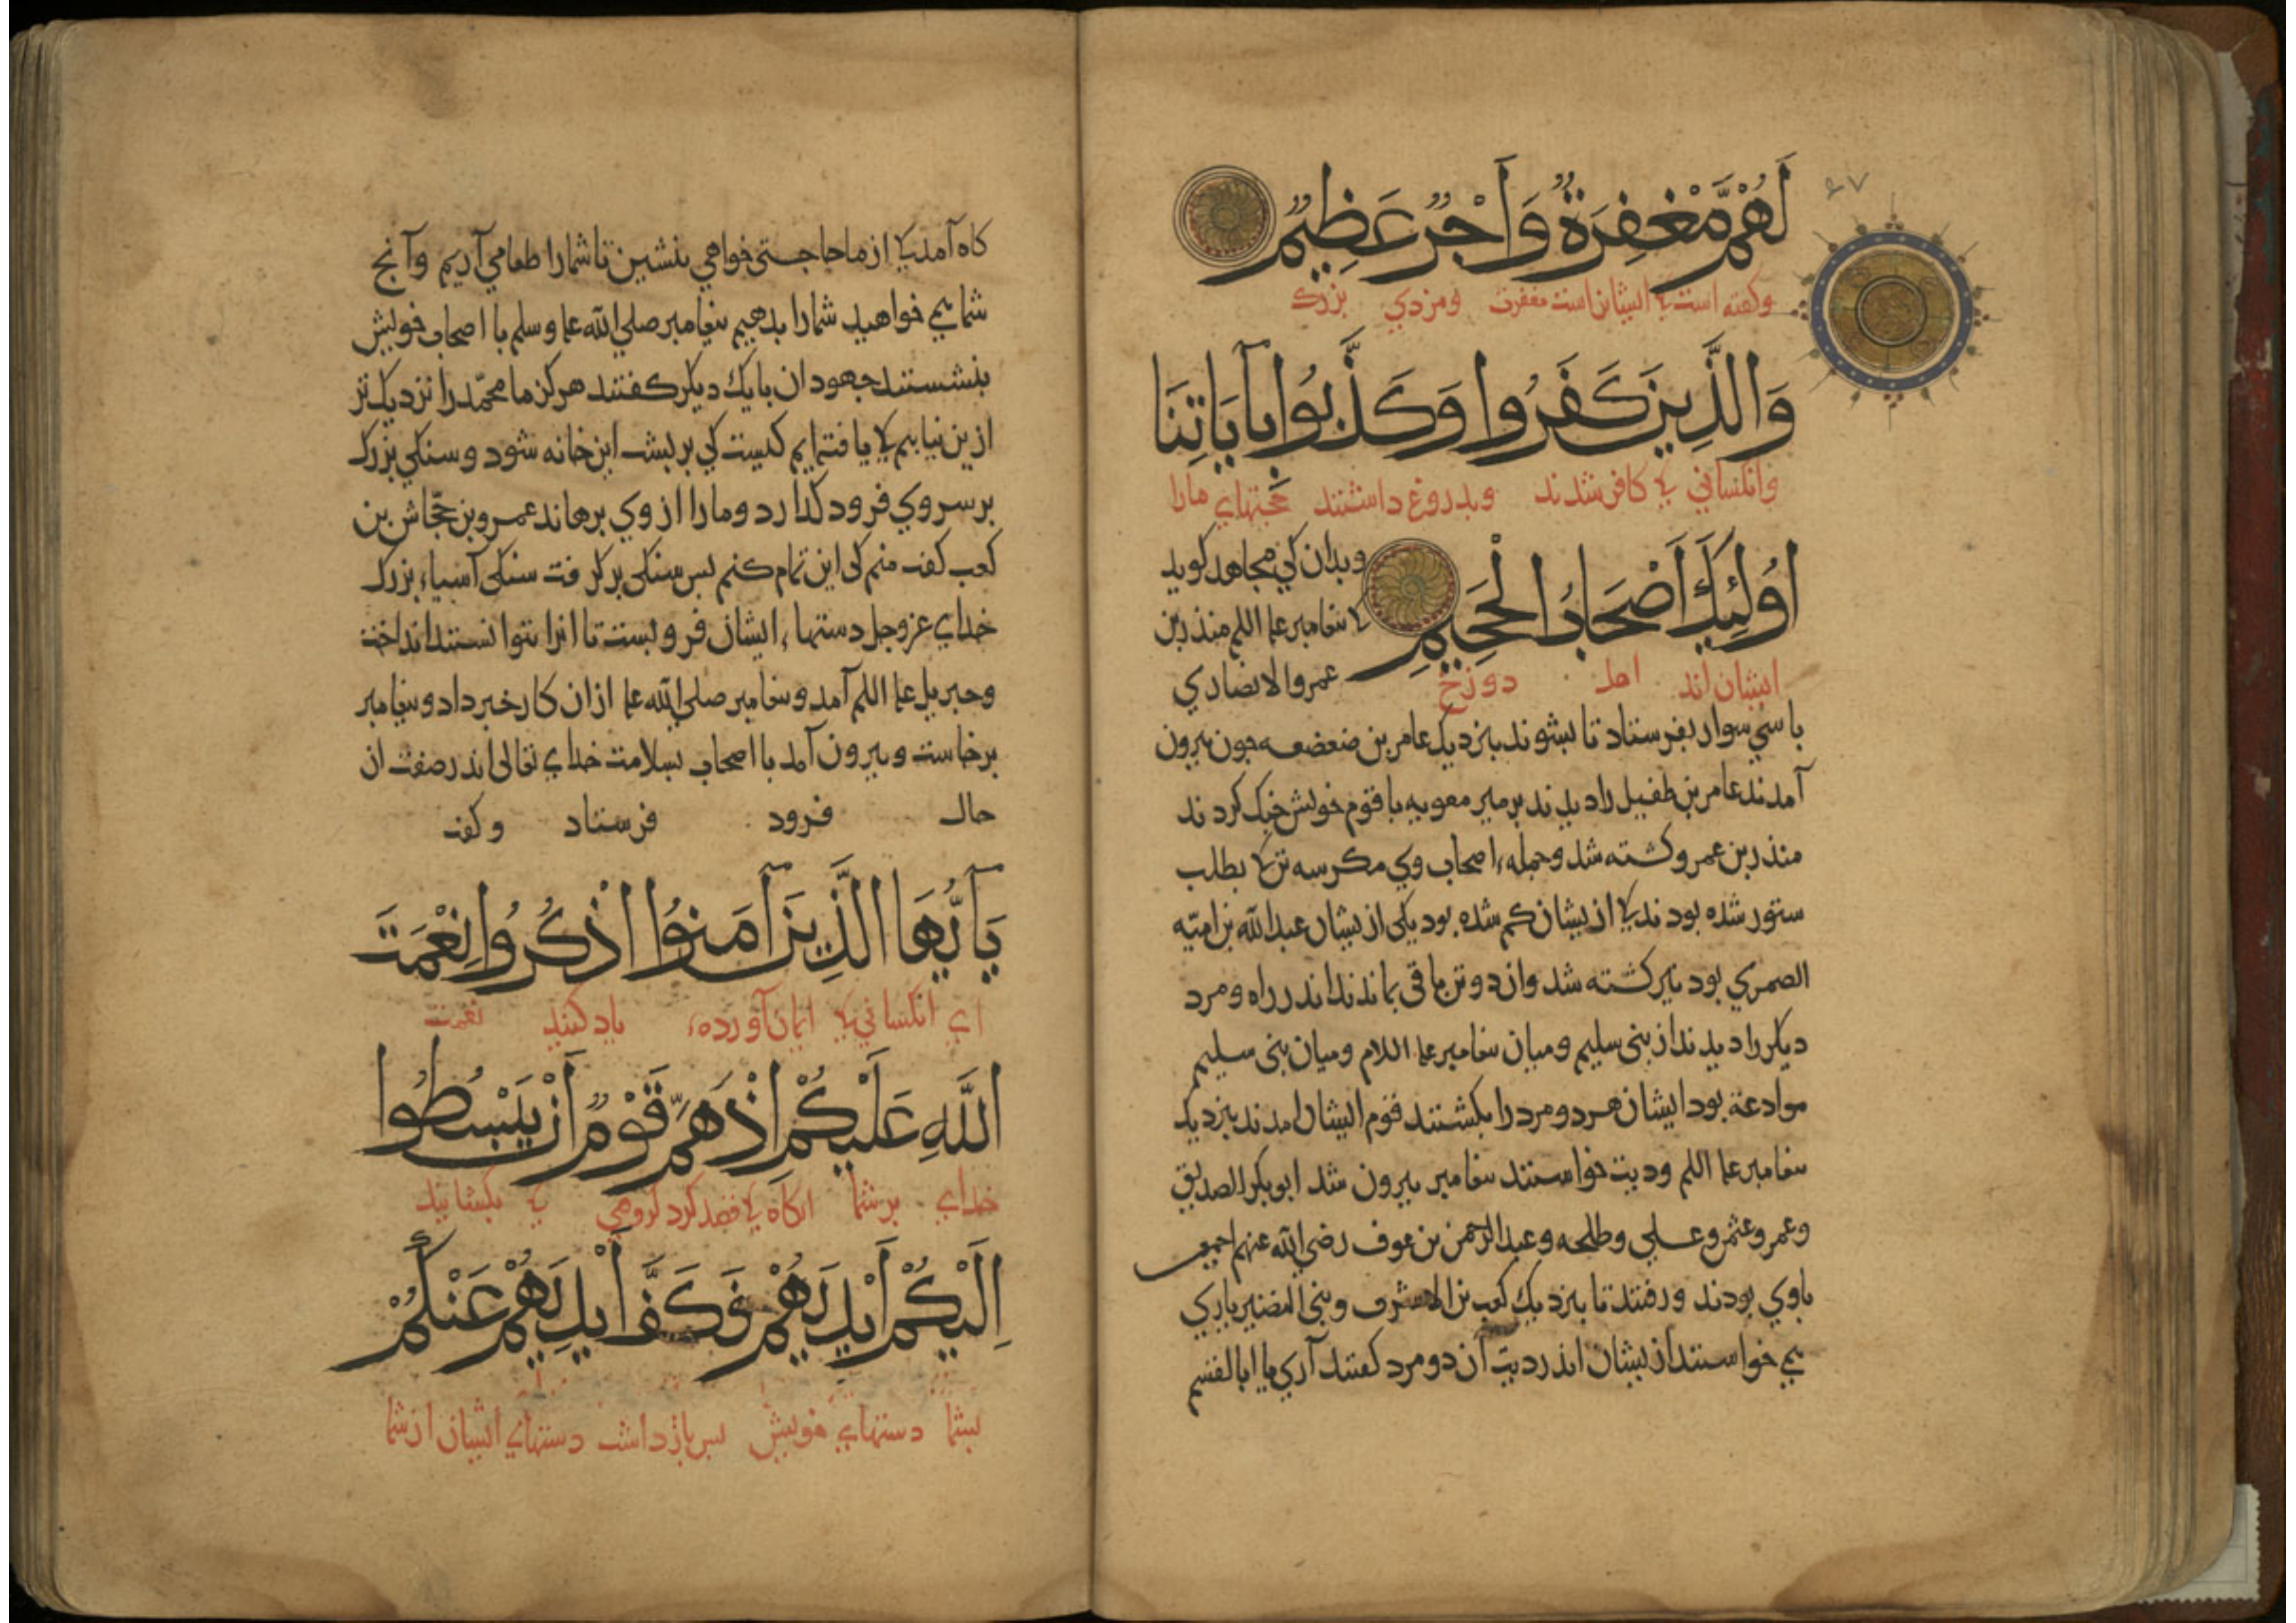 ۶۷
لَهُمْ مَّغْفِرَةٌ وَاَجْرٌ عَظِيمٌ
وکفته است کی ایشان‌راست مغفرت ومزدي بزرك
وَالَّذِينَ كَفَرُوا وَكَذَّبُوا بِآيَاتِنَا
وانکساني کی کافر شدند وبدروغ داشتند حجّتهاي مارا
اُولٰئِكَ اَصْحَابُ الْجَحِيمِ
ایشان اند اهل دوزخ
وبدان کي مجاهد کوید
کی بیغامبر علیه السلم منذر بن
عمرو الانصاري
با سي سوار بفرستاد تا بشوند بنزدیك عامر بن صعصعه جون بیرون
آمدند عامر بن طفیل را دیدند بر بیر معویه با قوم خویش جنك کردند
منذر بن عمرو کشته شد وجمله اصحاب وي مکر سه تن کی بطلب
ستور شده بودند کی از یشان کم شده بود یکی از یشان عبدالله بن امیّه
الضمري بود نیز کشته شد وان دو تن باقی بماندند اندر راه دو مرد
دیکر را دیدند از بنی سلیم ومیان بیغامبر علیه السلام ومیان بنی سلیم
موادعة بود ایشان هر دو مرد را بکشتند قوم ایشان امدند بنزدیك
بیغامبر علیه السلم ودیت خواستند بیغامبر بیرون شد ابوبکر الصدیق
وعمر وعثمن وعلی وطلحه وعبدالرحمن بن عوف رضي الله عنهم اجمعین
باوي بودند ورفتند تا بنزدیك کعب بن الاشرف وبنی النضیر یاري
می خواستند از یشان اندر دیت آن دو مرد کفتند آري یا ابا القسم
کاه آمد کی از ما حاجتی خواهي بنشین تا شما را طعامي آریم وآنج
شما می خواهید شما را بدهیم بیغامبر صلی الله علیه وسلم با اصحاب خویش
بنشستند جهودان با یك دیکر کفتند هرکز ما محمّد را نزدیك تر
ازین نیابیم کی یافته ایم کیست کي بر بشت این خانه شود وسنکي بزرك
بر سر وي فرود کذارد وما را از وي برهاند عمرو بن جحّاش بن
کعب کفت منم کی این تمام کنم بس سنکی برکرفت سنکی آسیاء بزرك
خداي عز وجل دستهاء ایشان فرو بست تا انرا نتوانستند انداخت
وجبریل علیه السلم آمد وبیغامبر صلی الله علیه ازان کار خبر داد وبیغامبر
برخاست وبیرون آمد با اصحاب بسلامت خداي تعالی اندر صفت ان
حال فرود فرستاد وکفت
يَا اَيُّهَا الَّذِينَ آمَنُوا اذْكُرُوا نِعْمَتَ
اي انکساني کی ایمان آورده‌ء یاد کنید نعمت
اللَّهِ عَلَيْكُمْ اِذْ هَمَّ قَوْمٌ اَنْ يَبْسُطُوا
خداي بر شما انکاه کی قصد کرد کروهي کی بکشایند
اِلَيْكُمْ اَيْدِيَهُمْ فَكَفَّ اَيْدِيَهُمْ عَنْكُمْ
بشما دستهاي خویش بس باز داشت دستهاي ایشان از شما